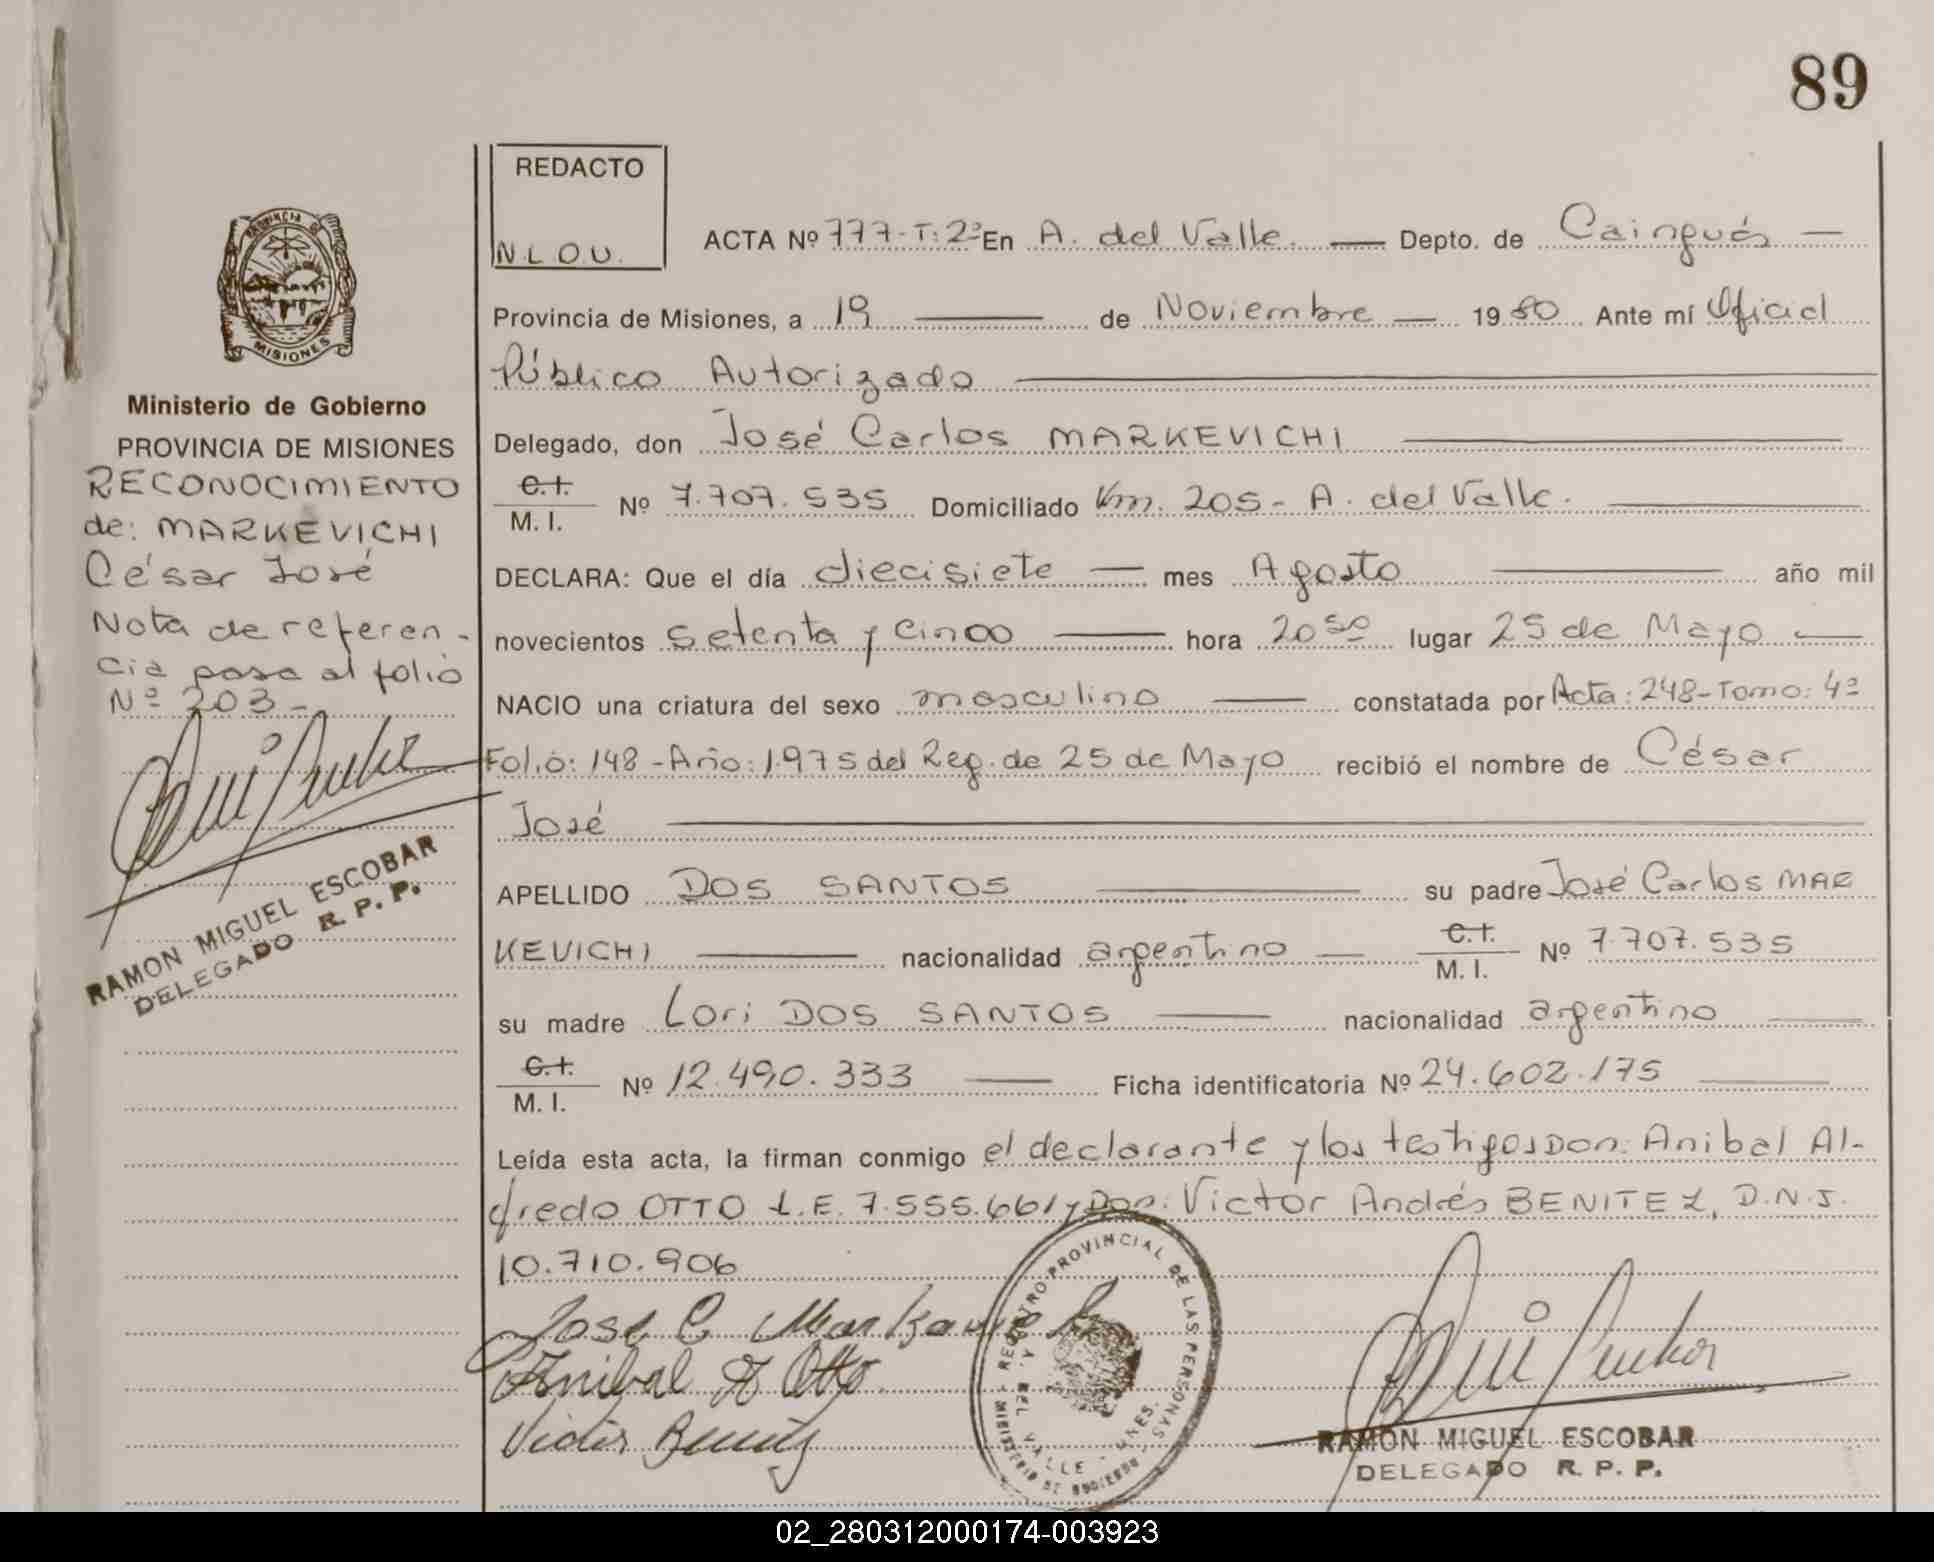 89
REDACTO
N.L.O.U.
ACTA Nº 777-T:2º En A. del Valle. — Depto. de Cainguás —
Provincia de Misiones, a 19 — de Noviembre — 1980 Ante mí Oficial
Público Autorizado —
Delegado, don José Carlos MARKEVICHI —
C.I.
M. I. Nº 7.707.535 Domiciliado Km. 205- A. del Valle. —
DECLARA: Que el día diecisiete — mes Agosto — año mil
novecientos setenta y cinco — hora 20⁵⁰ lugar 25 de Mayo —
NACIO una criatura del sexo masculino — constatada por Acta: 248-Tomo: 4º
Folio: 148 - Año: 1.975 del Reg. de 25 de Mayo recibió el nombre de César
José —
APELLIDO DOS SANTOS — su padre José Carlos MAR
KEVICHI — nacionalidad argentino — C.I.
M. I. Nº 7.707.535
su madre Lori DOS SANTOS — nacionalidad argentino —
C.I.
M. I. Nº 12.490.333 — Ficha identificatoria Nº 24.602.175 —
Leída esta acta, la firman conmigo el declarante y los testigos Don: Anibal Al-
fredo OTTO L.E. 7.555.661 y Don: Victor Andrés BENITEZ, D.N.I.
10.710.906
Jose C Markavich
Anibal A Otto
Victor Benitez
REGISTRO PROVINCIAL DE LAS PERSONAS
MINISTERIO DE GOBIERNO
DEL VALLE
RAMON MIGUEL ESCOBAR
DELEGADO R. P. P.
PROVINCIA DE
MISIONES
Ministerio de Gobierno
PROVINCIA DE MISIONES
RECONOCIMIENTO
de: MARKEVICHI
César José
Nota de referen-
cia pasa al folio
Nº 203-
RAMON MIGUEL ESCOBAR
DELEGADO R. P. P.
02_280312000174-003923